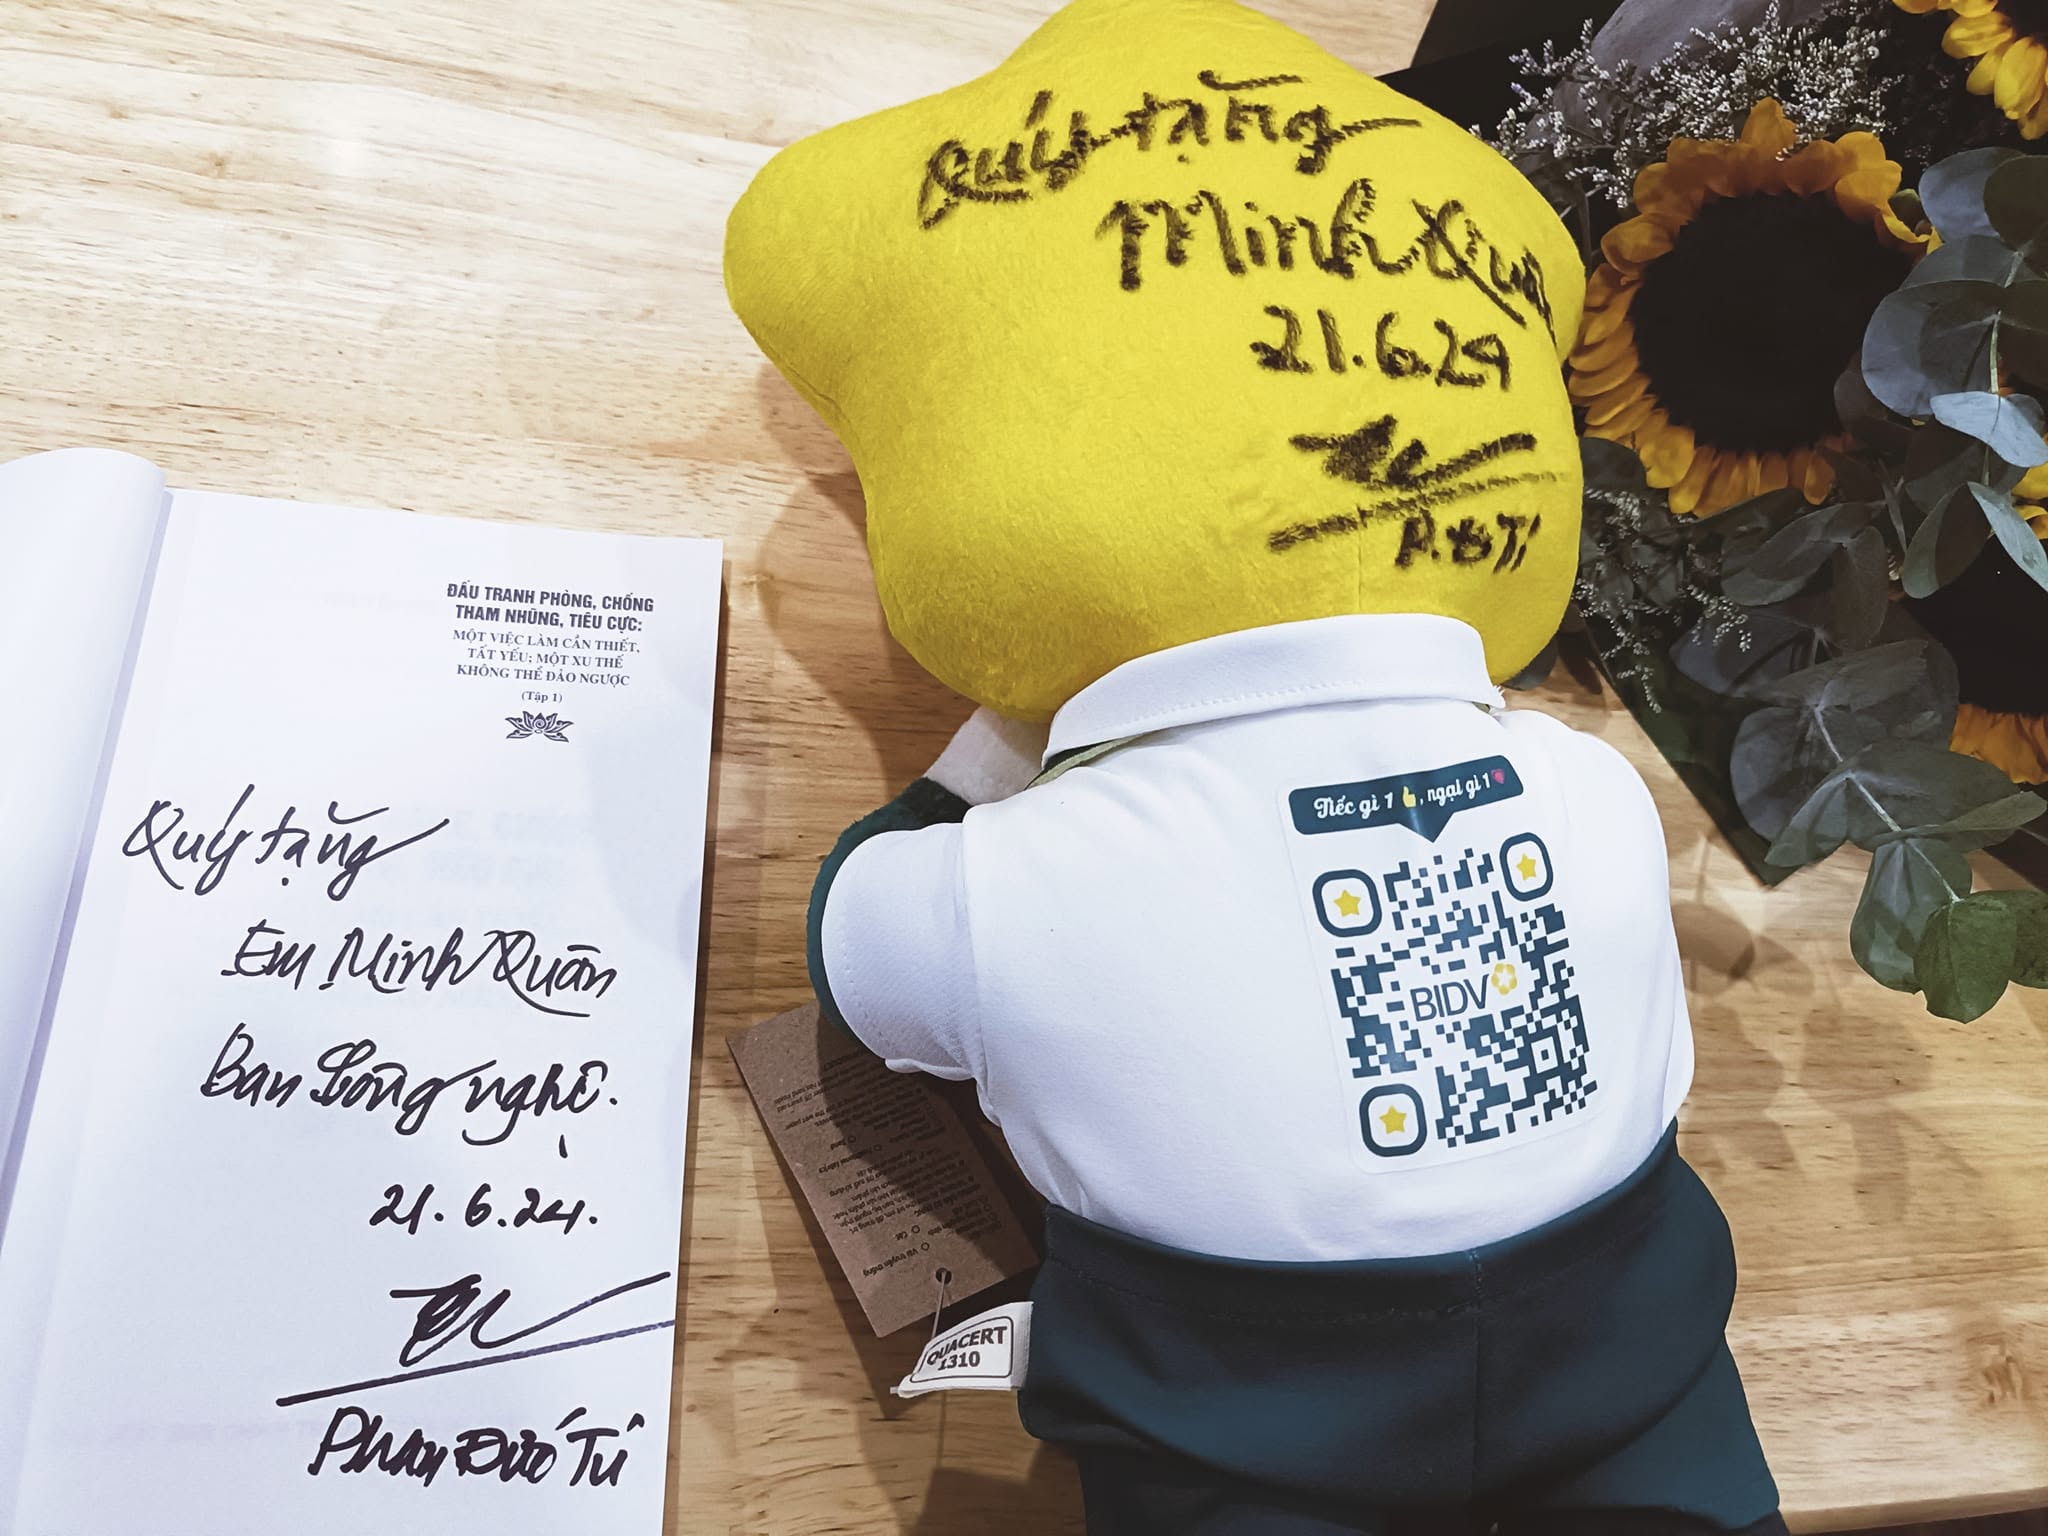 ĐẤU TRANH PHÒNG, CHỐNG
THAM NHŨNG, TIÊU CỰC:
MỘT VIỆC LÀM CẦN THIẾT,
TẤT YẾU; MỘT XU THẾ
KHÔNG THỂ ĐẢO NGƯỢC
(Tập 1)
Quý tặng
Em Minh Quân
Ban Công nghệ.
21.6.24.
Phan Đức Tú
Quý tặng
Minh Quân
21.6.24
P.Đ Tú
Tiếc gì 1 👍, ngại gì 1
BIDV
QUACERT
1310